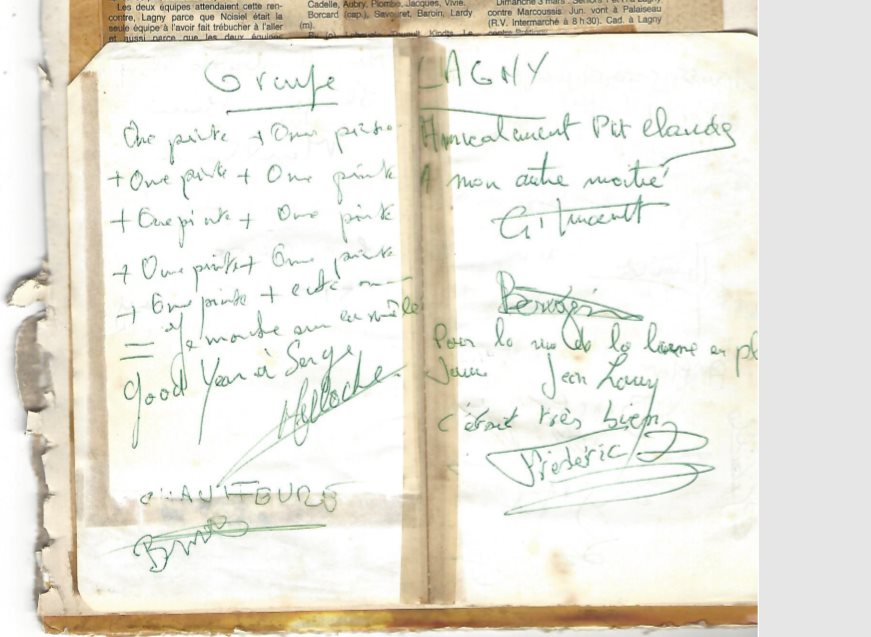 Les deux équipes attendaient cette ren-
contre, Lagny parce que Noisiel était la
seule équipe à l'avoir fait trébucher à l'aller
et aussi parce que les deux équipes
Cadelle, Aubry, Plombe, Jacques, Vivie.
Borcard (cap.), Savouret, Baroin, Lardy
(m).
contre Marcoussis Jun. vont à Palaiseau
(R.V. Intermarché à 8 h 30). Cad. à Lagny
Groupe
One pinte + One pinte
+ One pinte + One pinte
+ One pinte + One pinte
+ One pinte + One pinte
+ One pinte + etc
= Je monte sur
Good Year à Serge
CHANTEURS
Bruno
LAGNY
Amicalement Pit Claude
A mon autre moitié
G. Vincent
Pour la rue de la lune en
Jean Louis
c'était très bien
Frédéric